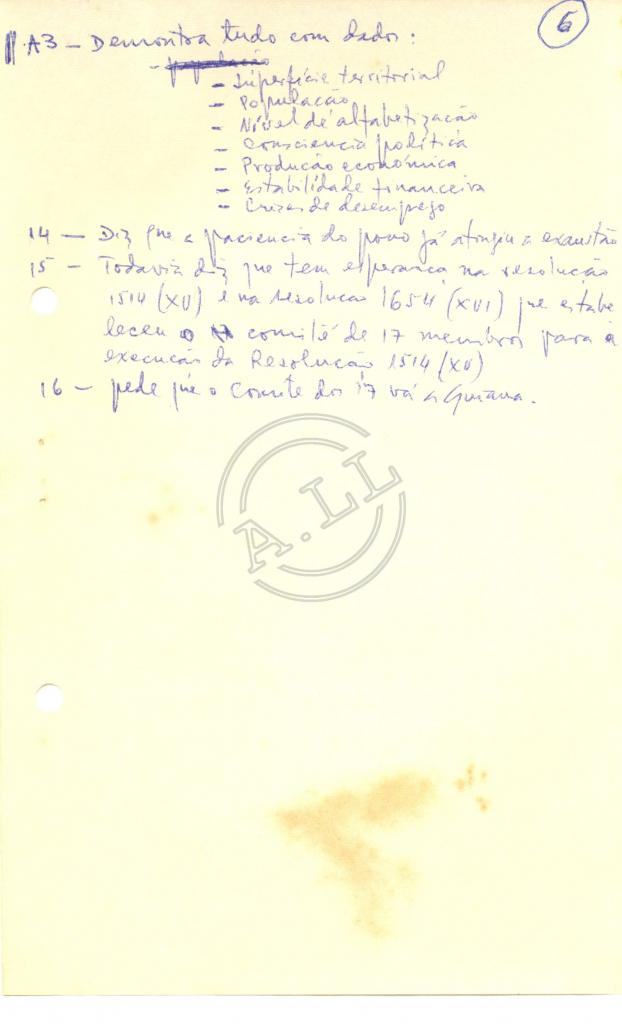 6
A3 - Demonstra tudo com dados:
- população
- Superfície territorial
- População
- Nível de alfabetização
- Consciencia política
- Produção económica
- Estabilidade financeira
- Crises de desemprego
14 - Diz que a paciencia do povo já atingiu a exaustão
15 - Todavia diz que tem esperança na resolução
1514 (XV) e na resolucao 1654 (XVI) que estabe
leceu o comité de 17 membros para a
execução da Resolução 1514 (XV)
16 - pede que o Comite dos 17 vá a Guiana.
A.LL